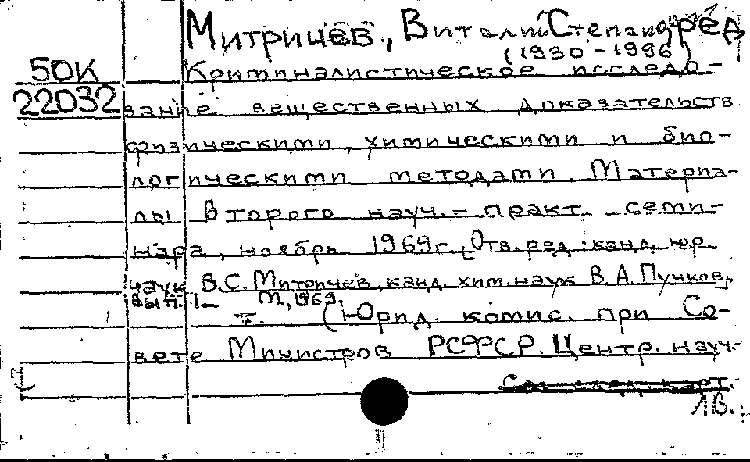 Митричев, Виталий Степан ред
(1930-1986)
50К Криминалистическое исследо-
22032 вание вещественных доказательств
физическими, химическими и био-
логическими методами. Материа-
лы Второго науч.-практ. семи-
нара, ноябрь 1969г. Отв. ред.: канд. юр.
наук В.С. Митричев, канд. хим. наук В.А. Пучков,
Вып. 1- М., 1969.
т. (Юрид. комис. при Со-
вете Министров РСФСР. Центр. науч-
Л.В.